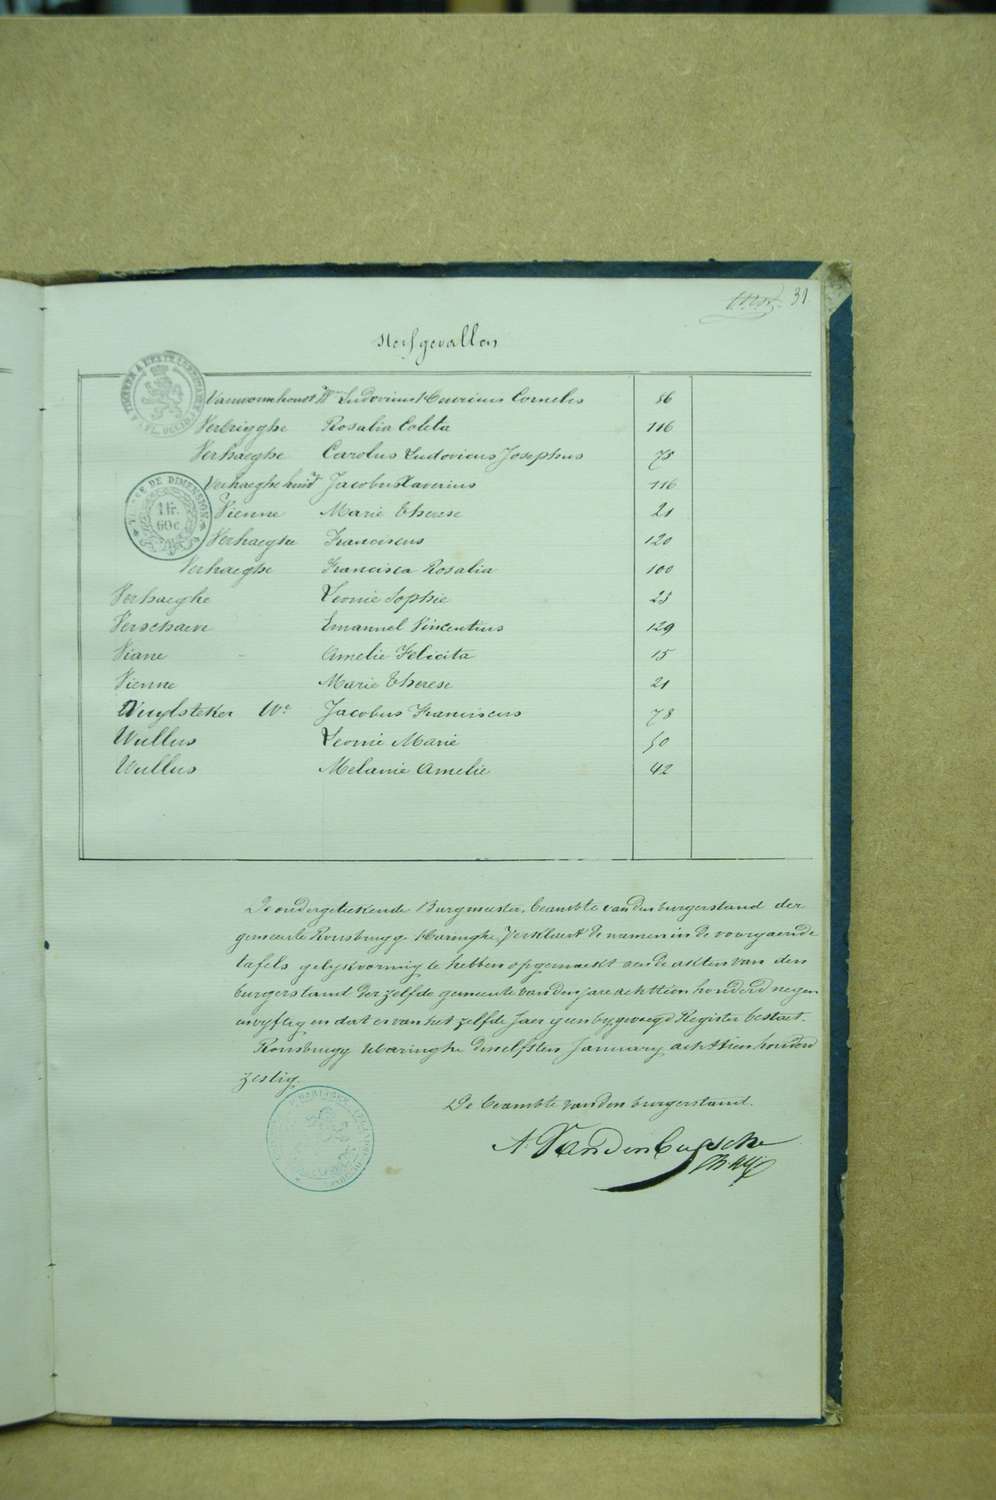 31
Sterfgevallen
Ludovicus Cornelis 86
Verbrigghe Rosalia Coleta 116
Verhaeghe Carolus Ludovicus Josephus 75
Verhaeghe Jacobus Xaverius 116
Vienne Marie Therese 21
Verhaeghe Franciscus 120
Verhaeghe Francisca Rosalia 100
Verhaeghe Leonie Sophie 23
Verschaeve Emanuel Vincentius 129
Viane Amelie Felicita 15
Vienne Marie Therese 21
Vuylsteker We Jacobus Franciscus 78
Wullus Leonie Marie 50
Wullus Melanie Amelie 42
TIMBRE DE DIMENSION
1 fr.
60 c.
De ondergeteekende Burgmeester, beambte van den burgerstand der
gemeente Rousbrugge Haringhe, Verklaert de namen in de voorgaende
tafels gelykvormig te hebben opgemaekt aen de akten van den
burgerstand der zelfde gemeente van den jare achttien honderd negen
en vyftig en dat er van het zelfde Jaer geen bygevoegd Register bestaet.
Rousbrugg Haringhe den elfsten January achttien honderd
zestig.
De beambte van den burgerstand.
A. Vandenbussche